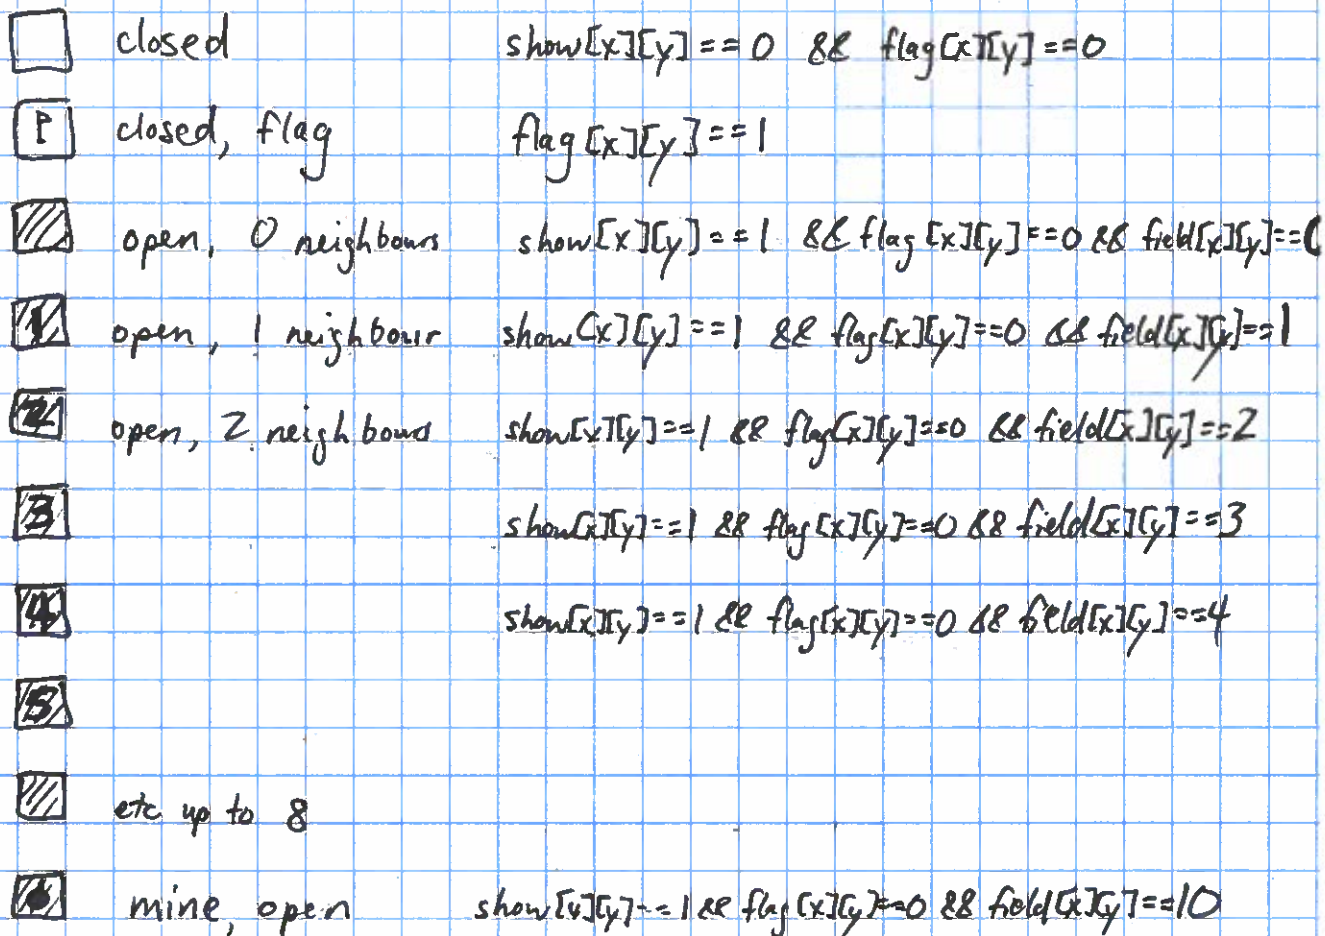 closed show[x][y]==0 && flag[x][y]==0
P closed, flag flag[x][y]==1
open, 0 neighbours show[x][y]==1 && flag[x][y]==0 && field[x][y]==0
1 open, 1 neighbour show[x][y]==1 && flag[x][y]==0 && field[x][y]==1
2 open, 2 neighbours show[x][y]==1 && flag[x][y]==0 && field[x][y]==2
3 show[x][y]==1 && flag[x][y]==0 && field[x][y]==3
4 show[x][y]==1 && flag[x][y]==0 && field[x][y]==4
5
etc up to 8
mine, open show[x][y]==1 && flag[x][y]==0 && field[x][y]==10